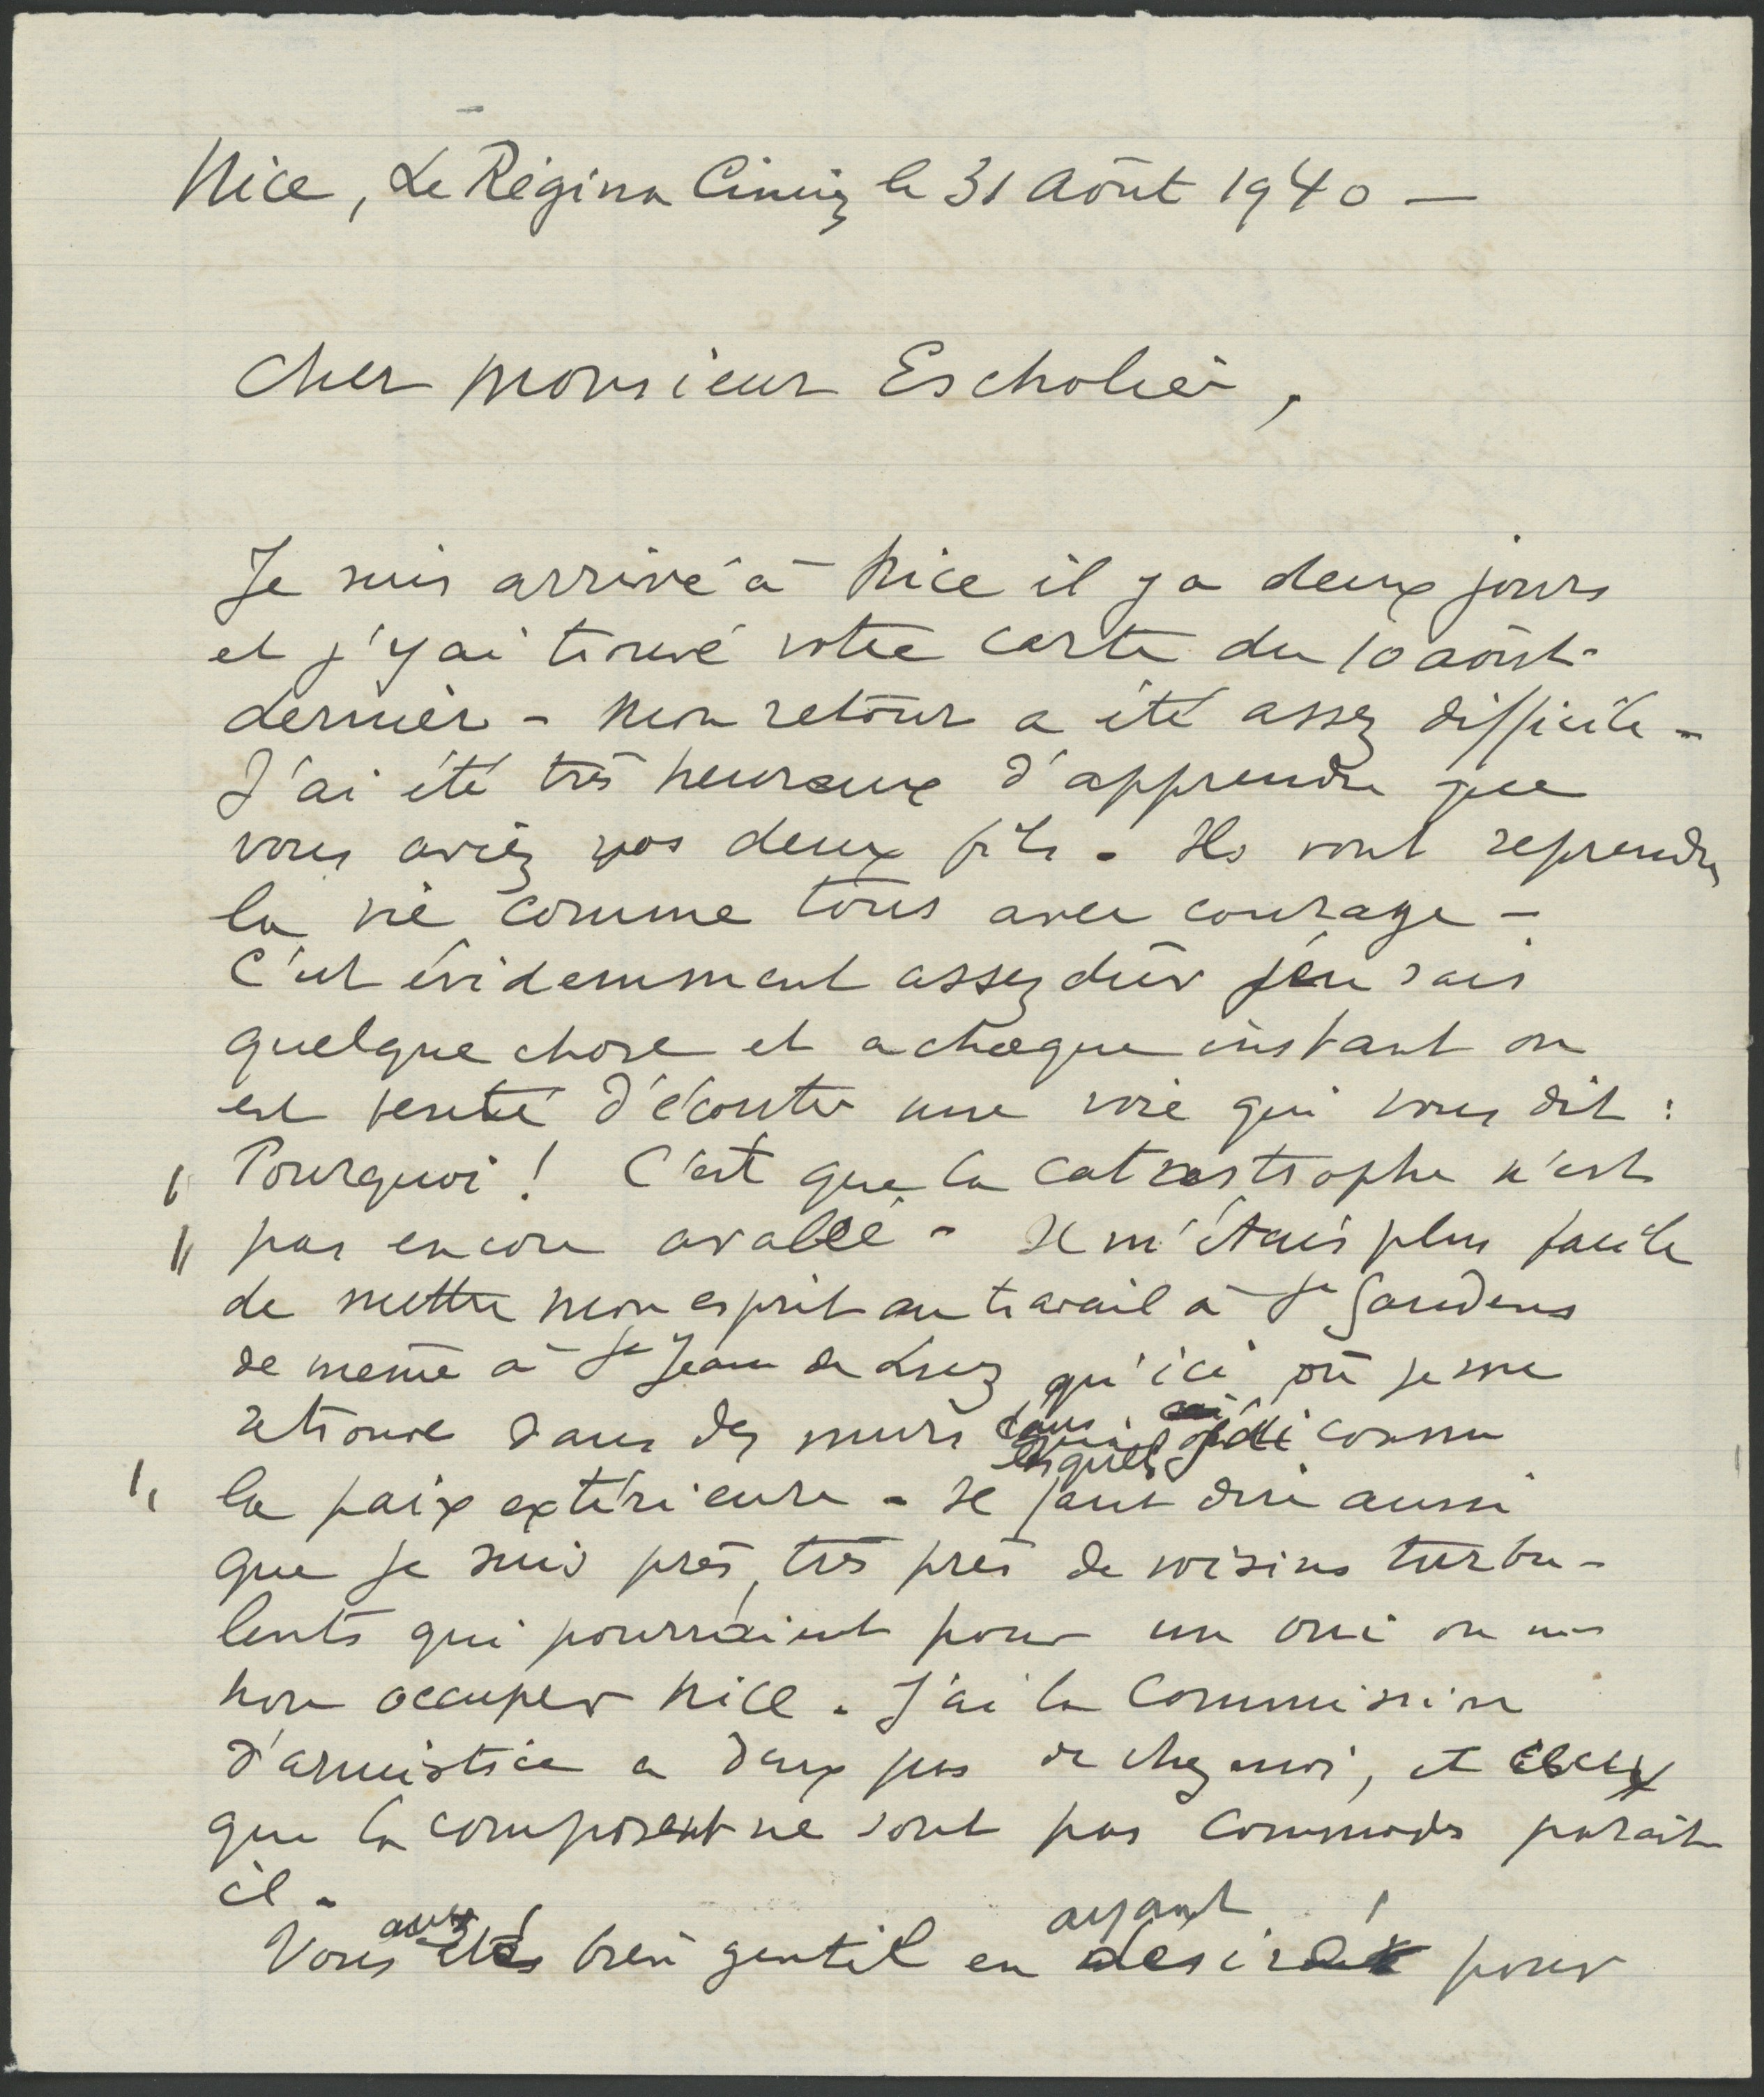 Nice, Le Régina Cimiez le 31 Août 1940 —
Cher Monsieur Escholier,
Je suis arrivé à Nice il y a deux jours
et j'y ai trouvé votre carte du 10 août
dernier - Mon retour a été assez difficile -
J'ai été très heureux d'apprendre que
vous aviez vos deux fils. Ils vont reprendre
la vie comme tous avec courage -
C'est évidemment assez dur j'en sais
quelque chose et a chaque instant on
est tenté d'écouter une voie qui vous dit :
Pourquoi ! C'est que la catastrophe n'est
pas encore avallée - Il m'était plus facile
de mettre mon esprit au travail à St Gaudens
de même à St Jean de Luz qu'ici où je me
retrouve dans des murs dans lesquels j'ai connu
la paix extérieure - Il faut dire aussi
que je suis près, très près de voisins turbu-
lents qui pourraient pour un oui ou un
non occuper Nice. J'ai la Commission
d'armistice a deux pas de chez moi, et ceux
qui la composent ne sont pas commodes parait
il.
Vous avez été bien gentil en ayant désiré pour